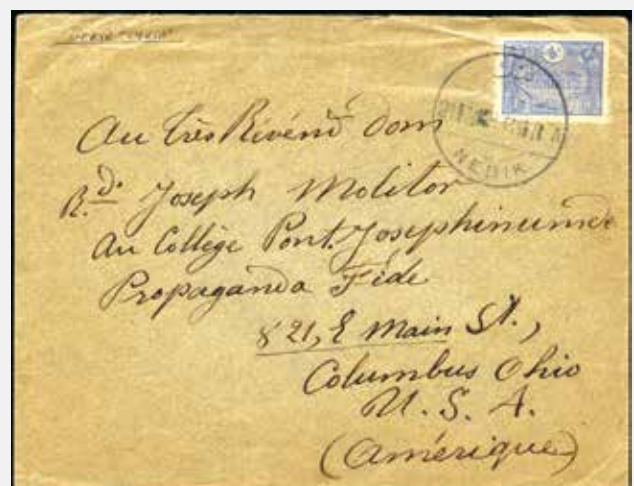 Au très Révénd dom
R.d. Joseph Molitor
Au Collège Pont. Josephinum de
Propaganda Fide
821, E Main St.,
Columbus Ohio
U. S. A.
(Amérique)
NEBIK